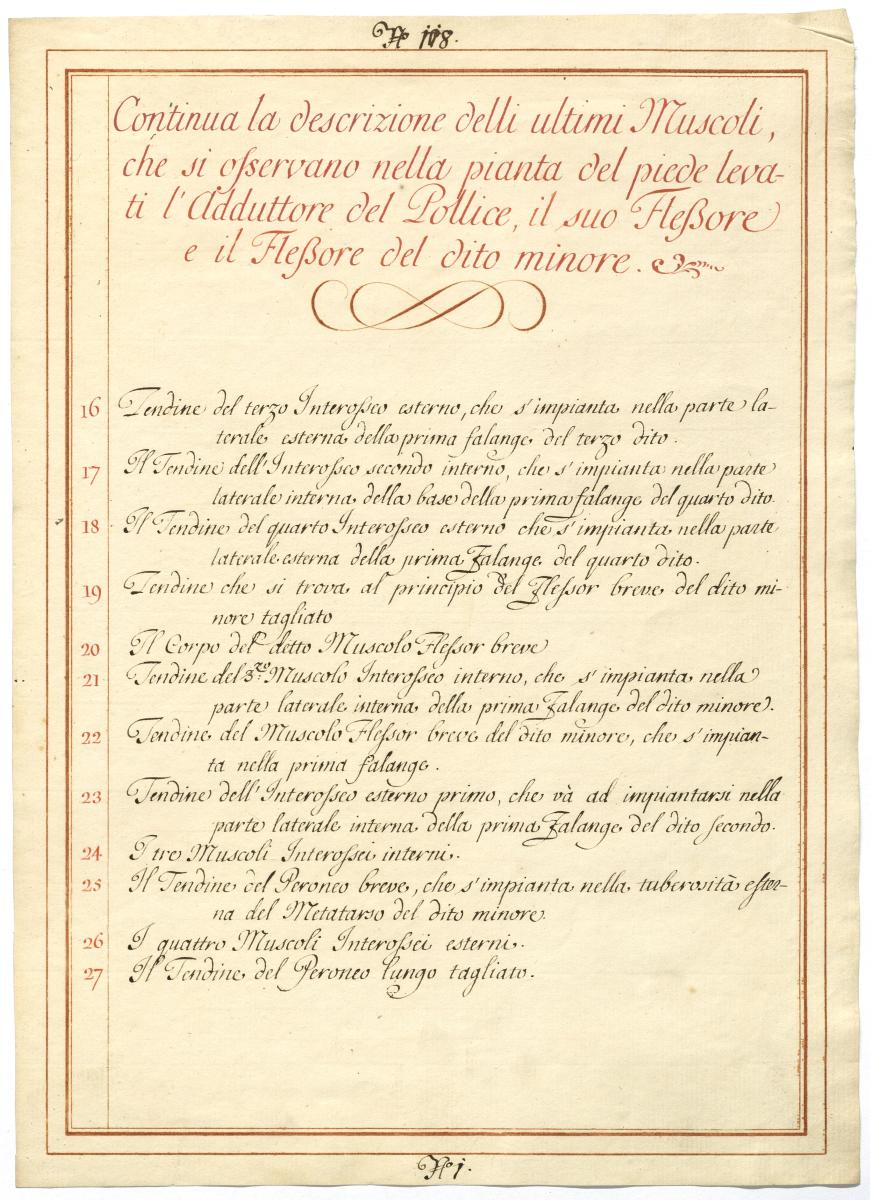 No 118.
Continua la descrizione delli ultimi Muscoli,
che si osservano nella pianta del piede leva-
ti l'Adduttore del Pollice, il suo Fleßore
e il Fleßore del dito minore.
16 Tendine del terzo Interosseo esterno, che s'impianta nella parte la-
terale esterna della prima falange del terzo dito.
17 Il Tendine dell'Interosseo secondo interno, che s'impianta nella parte
laterale interna della base della prima falange del quarto dito.
18 Il Tendine del quarto Interosseo esterno che s'impianta nella parte
laterale esterna della prima Falange del quarto dito.
19 Tendine che si trova al principio del Flessor breve del dito mi-
nore tagliato
20 Il Corpo del detto Muscolo Flessor breve
21 Tendine del 3.zo Muscolo Interosseo interno, che s'impianta nella
parte laterale interna della prima Falange del dito minore.
22 Tendine del Muscolo Flessor breve del dito minore, che s'impian-
ta nella prima falange.
23 Tendine dell'Interosseo esterno primo, che và ad impiantarsi nella
parte laterale interna della prima Falange del dito secondo.
24 I tre Muscoli Interossei interni.
25 Il Tendine del Peroneo breve, che s'impianta nella tuberosità ester-
na del Metatarso del dito minore.
26 I quattro Muscoli Interossei esterni.
27 Il Tendine del Peroneo lungo tagliato.
No 1.